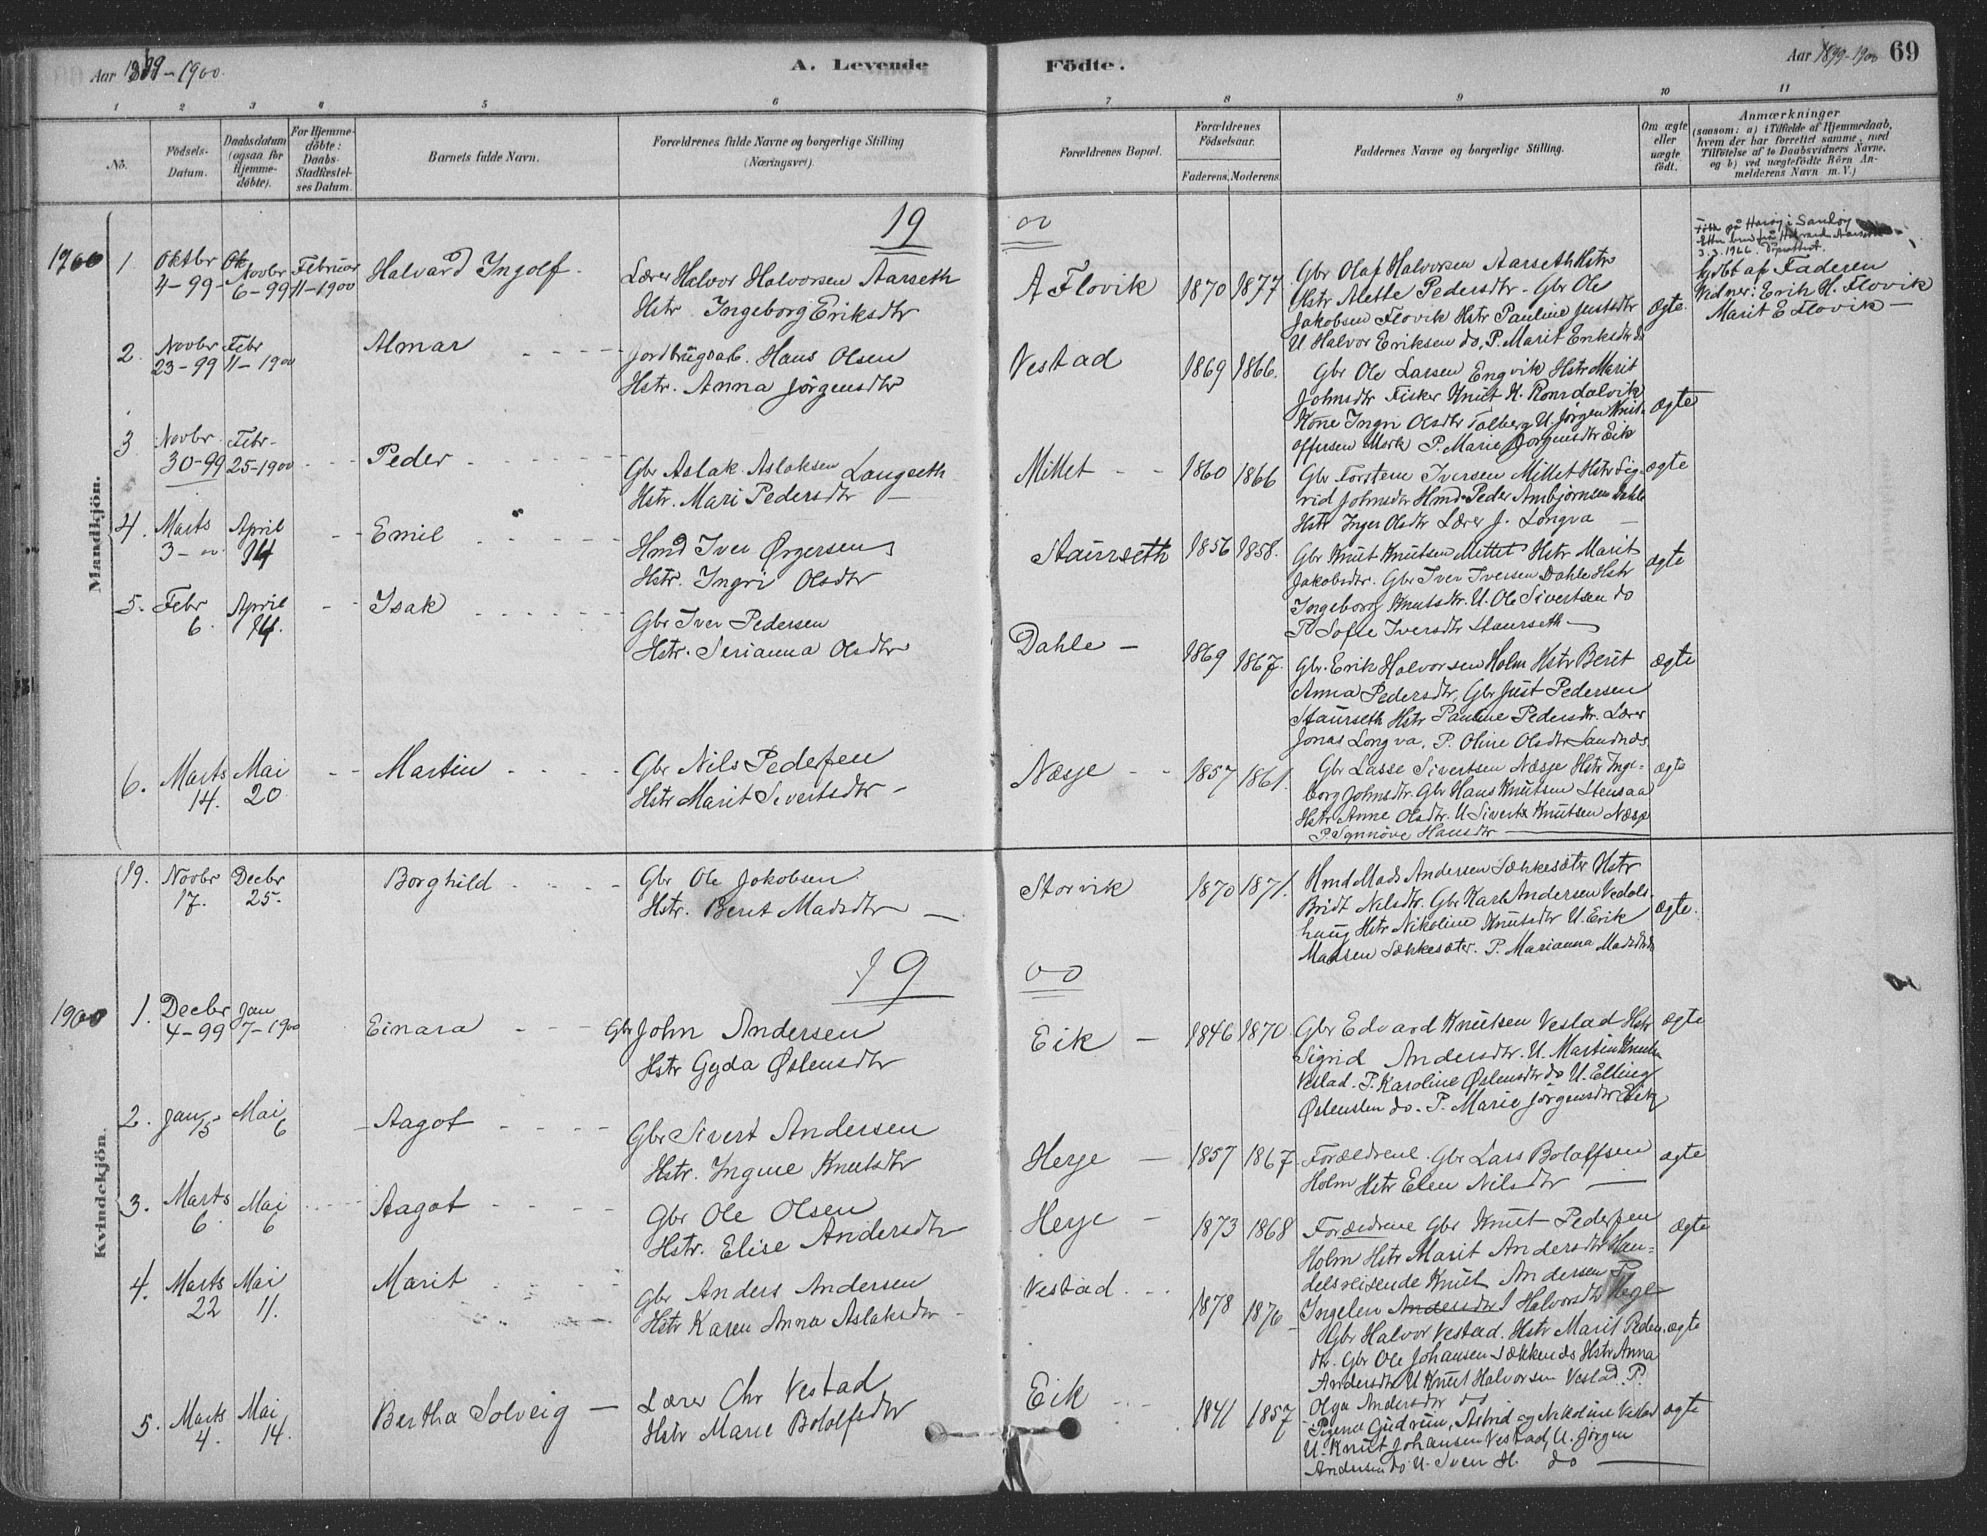 Aar 1899-1900.
A. Levende
Födte.
Aar 1899-1900
69
1 2 3 4 5 6 7 8 9 10 11
No.
Födsels-
Datum.
Daabsdatum
(ogsaa for
Hjemme-
döbte).
For Hjemme-
döbte:
Daabs-
Stadfæstel-
ses Datum.
Barnets fulde Navn.
Forældrenes fulde Navne og borgerlige Stilling
(Næringsvei).
Forældrenes Bopæl.
Forældrenes
Födselsaar.
Faderens. Moderens.
Faddernes Navne og borgerlige Stilling.
Om ægte
eller
uægte
födt.
Anmærkninger
(saasom: a) i Tilfælde af Hjemmedaab,
hvem der har forrettet samme, med
Tilföielse af to Daabsvidners Navne,
og b) ved uægtefödte Börn An-
melderens Navn m. V.)
Mandkjön.
19 00
1900
1 Oktbr 4-99 Novbr 6-99 Februar 11-1900
Halvard Ingolf.
Lærer Halvor Halvorsen Aarseth
Hstr Ingeborg Eriksdtr
A Flovik 1870 1877
Gbr Olaf Halvorsen Aarseth Hstr
Hstr Mette Pedersdtr. Gbr Ole
Jakobsen Flovik Hstr Pauline Justsdtr
U Halvor Eriksen do, P. Marit Eriksdtr do
ægte.
3.3.1966
hjdbt af Faderen
Vidner: Erik H. Flovik
Marit E Flovik -
2. Novbr 23-99 Febr 11-1900
Almar
Jordbrugsarb. Hans Olsen
Hstr. Anna Jörgensdtr
Vestad 1869 1866.
Gbr Ole Larsen Engvik Hstr Marit
Johnsdtr Fisker Knut K. Romdalvik
Kone Ingri Olsdtr Talberg U. Jörgen Krist-
offersen Mork P. Marie Jörgensdtr Eik
ægte
3 Novbr. 30-99 Febr- 25-1900
Peder
Gbr Aslak Aslaksen Langseth
Hstr. Mari Pedersdtr
Mittet 1860 1866
Gbr Torstein Iversen Mittet Hstr Sig-
rid Johnsdtr Hmd Peder Ambjörnsen Dahle
Hstr Inger Olsdtr Lærer J. Longva
ægte
4. Marts 3-00 April 14
Emil
Hmd Iver Ørgersen
Hstr. Ingri Olsdtr
Staurseth 1856 1858.
Gbr Knut Knutsen Mittet Hstr Marit
Jakobsdtr. Gbr Iver Iversen Dahle Hstr
Ingeborg Knutsdtr. U. Ole Sivertsen do
P Sofie Iversdtr Staurseth
ægte
5. Febr 6. April 14.
Isak
Gbr Iver Pedersen
Hstr. Serianna Olsdtr
Dahle - 1869 1867.
Gbr. Erik Halvorsen Holm Hstr Berit
Anna Pedersdtr, Gbr Just Pedersen
Staurseth Hstr Pauline Pedersdtr. Lærer
Jonas Longva, P. Oline Olsdtr Sandnæs
ægte
6. Marts 14. Mai 20
Martin
Gbr Nils Pedersen
Hstr Marit Sivertsdtr -
Næsje 1857 1861.
Gbr Lasse Sivertsen Næsje Hstr Inge-
borg Johnsdtr. Gbr Hans Knutsen Stensaa
Hstr Anne Olsdtr. U Sivert Knutsen Næsje
P. Synnöve Hansdtr
ægte
Kvindekjön.
19. Novbr 17. Decbr 25.
Borghild
Gbr Ole Jakobsen
Hstr. Berit Madsdtr
Storvik 1870 1871.
Hmd Mads Andersen Sækkesæter Hstr
Bridt Nilsdtr. Gbr Karl Andersen Vedals-
haug Hstr Nikoline Knutsdtr U. Erik
Madsen Sækkesæter. P. Marianna Madsdtr do
ægte.
19 00
1900
1. Decbr 4-99 Jan 7-1900
Einara
Gbr John Andersen
Hstr Gyda Østensdtr
Eik - 1846 1870
Gbr Edvard Knutsen Vestad Hstr
Sigrid Andersdtr. U. Martin Knutsen
Vestad. P. Karoline Østensdtr do U. Elling
Østensen do. P. Marie Jörgensdtr Eik
ægte
2. Jan 15 Mai 6
Aagot
Gbr Sivert Andersen
Hstr. Ingine Knutsdtr
Herje - 1857 1867.
Forældrene. Gbr Lars Bololfsen
Holm Hstr Elen Nilsdtr
ægte
3. Marts 6. Mai 6
Aagot
Gbr Ole Olsen
Hstr. Elise Andersdtr
Herje - 1873 1868
Forældrene Gbr Knut Pedersen
Holm Hstr Marit Andersdtr Han-
delsreisende Knut Andersen P.
Ingelen Andersdtr Halvorsdtr Herje
ægte
4. Marts 22 Mai 11.
Marit
Gbr Anders Andersen
Hstr Karen Anna Aslaksdtr
Vestad 1878 1876
Gbr Halvor Vestad. Hstr Marit Peders-
dtr. Gbr Ole Johansen Sækkenæs Hstr Anna
Andersdtr U Knut Halvorsen Vestad. P.
Olga Andersdtr do
ægte
5. Marts 4. Mai 14.
Bertha Solveig
Lærer Chr Vestad
Hstr Marie Bololfsdtr
Eik 1841 1857
Pigerne Gudrun, Astrid og Nikoline Vestad
U. Knut Johansen Vestad, U. Jörgen
Andersen do U. Sven H. do
ægte